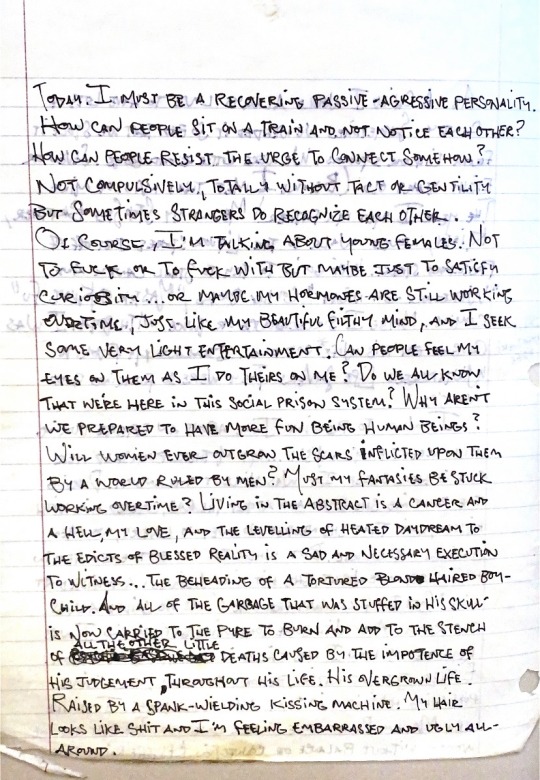 TODAY. I MUST BE A RECOVERING PASSIVE-AGRESSIVE PERSONALITY.
HOW CAN PEOPLE SIT ON A TRAIN AND NOT NOTICE EACH OTHER?
HOW CAN PEOPLE RESIST THE URGE TO CONNECT SOMEHOW?
NOT COMPULSIVELY, TOTALLY WITHOUT TACT OR GENTILITY
BUT SOMETIMES STRANGERS DO RECOGNIZE EACH OTHER.
OF COURSE, I'M TALKING ABOUT YOUNG FEMALES. NOT
TO FUCK OR TO FUCK WITH BUT MAYBE JUST TO SATISFY
CURIOSITY... OR MAYBE MY HORMONES ARE STILL WORKING
OVERTIME, JUST LIKE MY BEAUTIFUL FILTHY MIND, AND I SEEK
SOME VERY LIGHT ENTERTAINMENT. CAN PEOPLE FEEL MY
EYES ON THEM AS I DO THEIRS ON ME? DO WE ALL KNOW
THAT WE'RE HERE IN THIS SOCIAL PRISON SYSTEM? WHY AREN'T
WE PREPARED TO HAVE MORE FUN BEING HUMAN BEINGS?
WILL WOMEN EVER OUTGROW THE SCARS INFLICTED UPON THEM
BY A WORLD RULED BY MEN? MUST MY FANTASIES BE STUCK
WORKING OVERTIME? LIVING IN THE ABSTRACT IS A CANCER AND
A HELL, MY LOVE, AND THE LEVELLING OF HEATED DAYDREAM TO
THE EDICTS OF BLESSED REALITY IS A SAD AND NECESSARY EXECUTION
TO WITNESS... THE BEHEADING OF A TORTURED BLONDE HAIRED BOY-
CHILD. AND ALL OF THE GARBAGE THAT WAS STUFFED IN HIS SKULL
IS NOW CARRIED TO THE PYRE TO BURN AND ADD TO THE STENCH
OF ALL THE OTHER LITTLE DEATHS CAUSED BY THE IMPOTENCE OF
HIS JUDGEMENT, THROUGHOUT HIS LIFE. HIS OVERGROWN LIFE.
RAISED BY A SPANK-WIELDING KISSING MACHINE. MY HAIR
LOOKS LIKE SHIT AND I'M FEELING EMBARRASSED AND UGLY ALL-
AROUND.